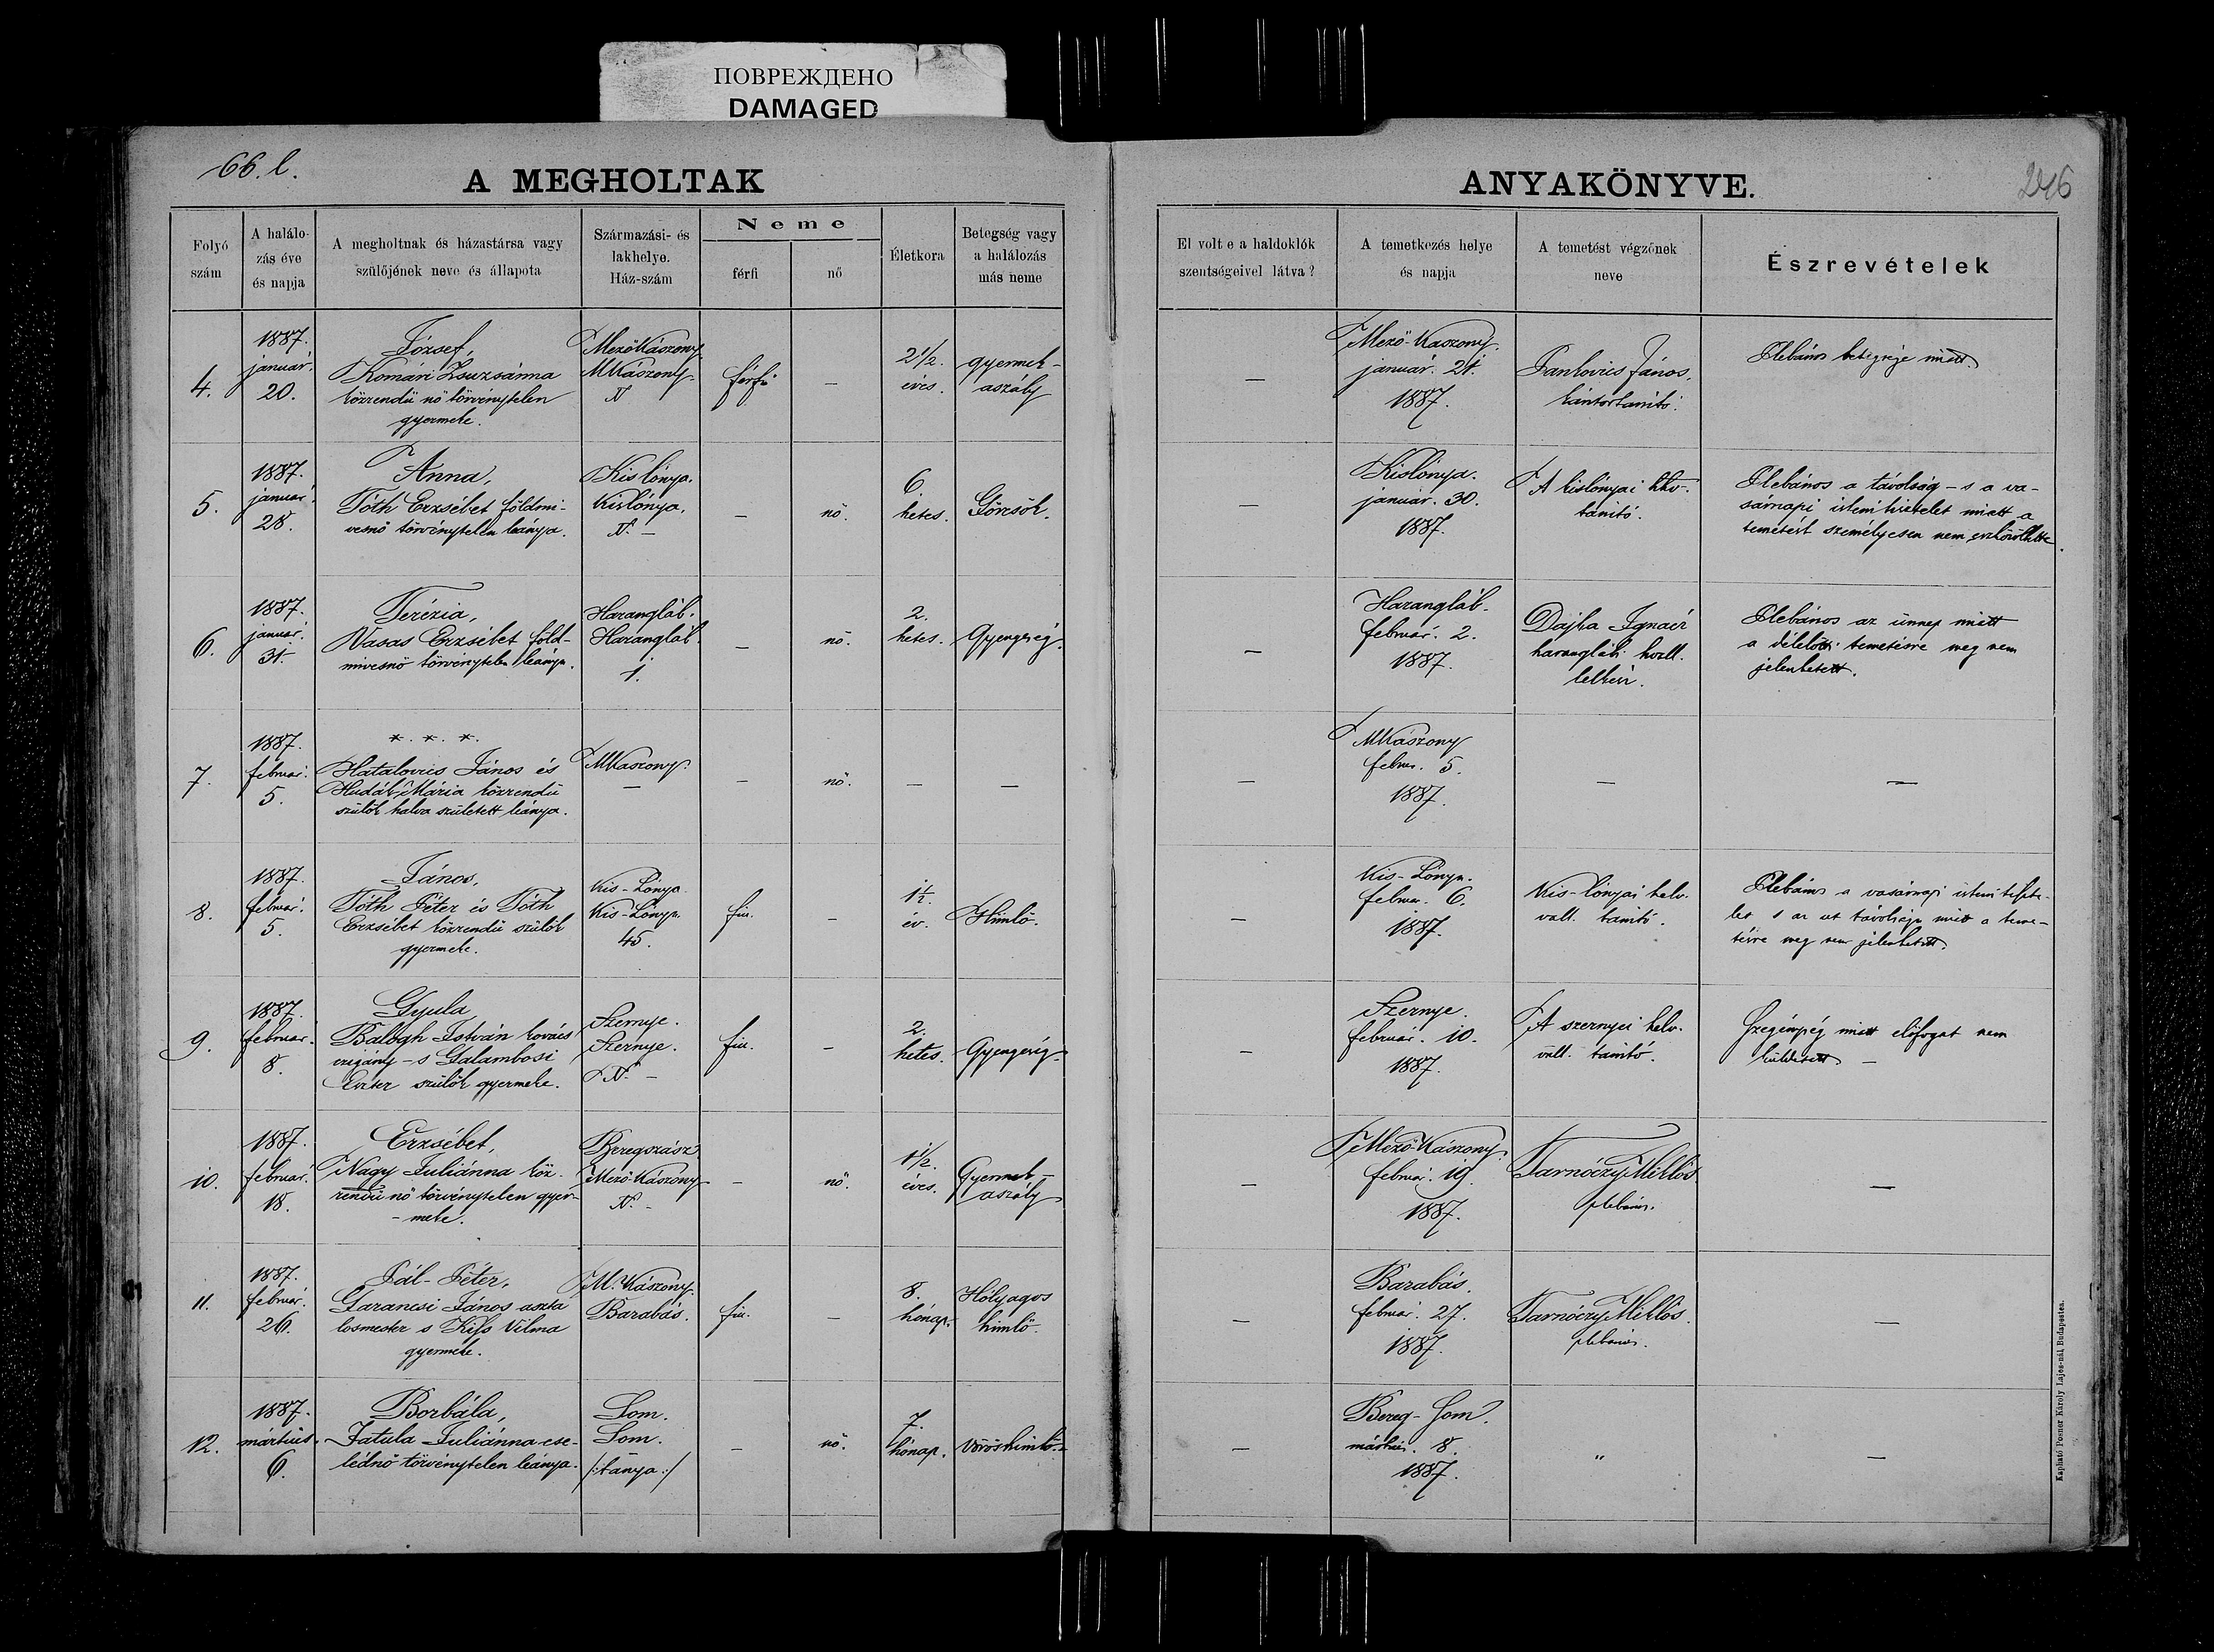 ПОВРЕЖДЕНО
DAMAGED
66. l.
A MEGHOLTAK
Folyó
szám
A halálo-
zás éve
és napja
A megholtnak és házastársa vagy
szülőjének neve és állapota
Származási- és
lakhelye.
Ház-szám
Neme
férfi
nő
Életkora
Betegség vagy
a halálozás
más neme
4.
1887.
január.
20.
József,
Komári Zsuzsánna
közrendü nő törvénytelen
gyermeke.
MezőKászony
MKászony.
N
férfi
—
2 1/2.
éves.
gyermek-
aszály
5.
1887.
január.
28.
Anna,
Tóth Erzsébet földmi-
vesnő törvénytelen leánya.
Kislónya.
Kislónya.
N. —
—
nő.
6.
hetes.
Görcsök.
6.
1887.
január.
31.
Terézia,
Vasas Erzsébet föld-
mivesnő törvénytelen leánya.
Harangláb.
Harangláb.
1.
—
nő.
2.
hetes.
Gyengeség.
7.
1887.
február.
5.
*. *. *.
Hatalovics János és
Hudák Mária közrendü
szülők halva született leánya.
MKászony.
—
—
nő.
—
—
8.
1887.
február.
5.
János,
Tóth Péter és Tóth
Erzsébet közrendü szülők
gyermeke.
Kis-Lónya.
Kis-Lónya.
45.
fiu.
—
1 1/2.
év.
Himlő.
9.
1887.
február.
8.
Gyula,
Balogh István kovács
czigány - s Galambosi
Eszter szülők gyermeke.
Szernye.
Szernye.
N. —
fiu.
—
2.
hetes.
Gyengeség.
10.
1887.
február.
18.
Erzsébet,
Nagy Juliánna köz-
rendü nő törvénytelen gyer-
-meke.
Beregszász
Mező-Kászony
N. -
—
nő.
1 1/2.
éves.
Gyermek-
aszály
11.
1887.
február.
26.
Pál-Péter,
Garancsi János aszta
losmester s Kiss Vilma
gyermeke.
M. Kászony.
Barabás.
fiu.
—
8.
hónap.
Hólyagos
himlő.
12.
1887.
mártius.
6.
Borbála,
Fatula Juliánna cse-
lédnő törvénytelen leánya.
Som.
Som.
/:tanya:/
—
nő.
7.
hónap.
Vöröshimlő.
ANYAKÖNYVE.
246
El volt e a haldoklók
szentségeivel látva?
A temetkezés helye
és napja
A temetést végzőnek
neve
Észrevételek
—
Mező-Kaszony.
január. 21.
1887.
Jankovics János,
kántortanitó.
Plébános betegsége miatt.
—
Kislónya.
január. 30.
1887.
A kislónyai hv.
tanitó.
Plebános a távolság - s a va-
sárnapi istenitisztelet miatt a
temetést személyesen nem eszközölhette.
—
Harangláb.
február. 2.
1887.
Dajka Ignácz
haranglábi hvall.
lelkész.
Plebános az ünnep miatt
a délelőtti temetésre meg nem
jelenhetett.
—
MKászony
febru. 5.
1887.
—
—
—
Kis-Lónya.
febru. 6.
1887.
Kis-lónyai helv.
vall. tanitó.
Plebános a vasárnapi istenitiszte-
let s az ut távolsága miatt a teme-
tésre meg nem jelenhetett.
—
Szernye.
február. 10.
1887.
A szernyei helv.
vall. tanitó.
Szegénység miatt előfogat nem
küldetett —
—
Mező-Kászony.
február. 19.
1887.
Tarnóczy Miklós
plebános.
—
—
Barabás.
február. 27.
1887.
Tarnóczy Miklós.
plebános.
—
—
Bereg-Som.
mártius. 8.
1887.
"
—
Kapható Posner Károly Lajos-nál, Budapesten.